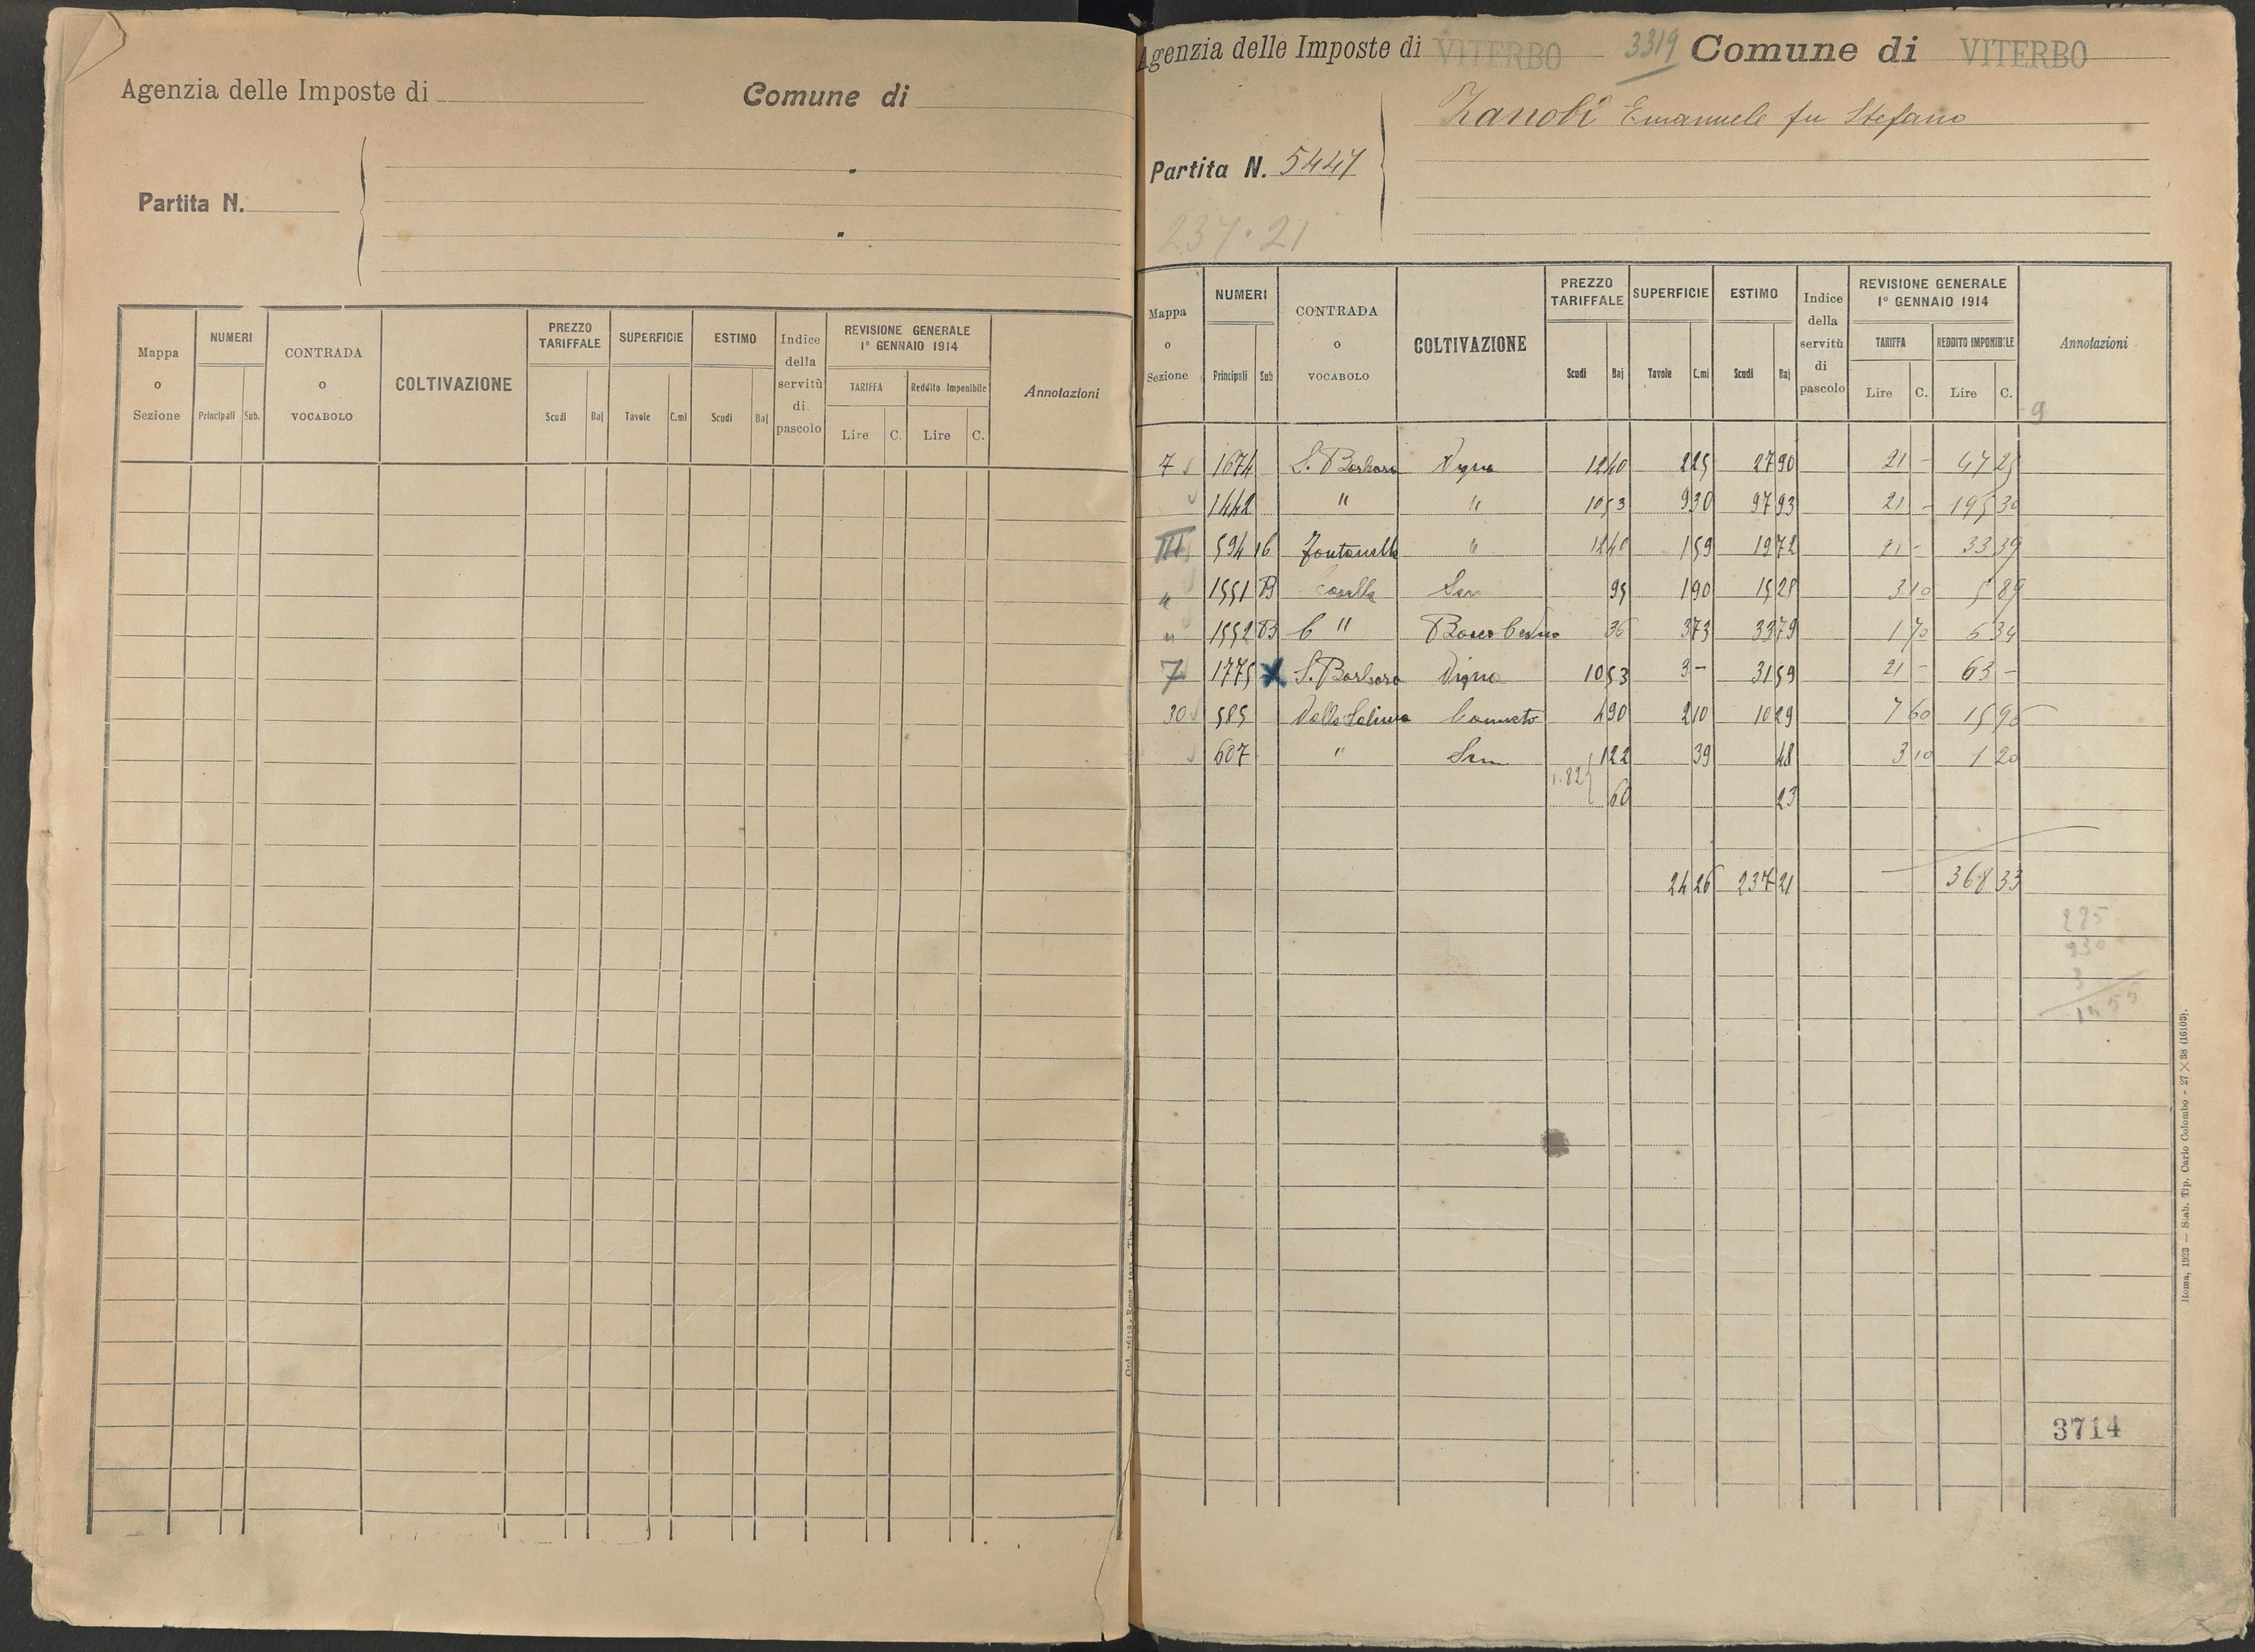 Agenzia delle Imposte di
Comune di
Partita N.
Mappa o Sezione
NUMERI
Principali Sub.
CONTRADA o VOCABOLO
COLTIVAZIONE
PREZZO TARIFFALE
Scudi Baj
SUPERFICIE
Tavole C.mi
ESTIMO
Scudi Baj
Indice della servitù di pascolo
REVISIONE GENERALE 1° GENNAIO 1914
TARIFFA Reddito Imponibile
Lire C. Lire C.
Annotazioni
Agenzia delle Imposte di VITERBO 3319 Comune di VITERBO
Zanobi Emanuele fu Stefano
Partita N. 5447
237.21
Mappa o Sezione
NUMERI
Principali Sub
CONTRADA o VOCABOLO
COLTIVAZIONE
PREZZO TARIFFALE
Scudi Baj
SUPERFICIE
Tavole C.mi
ESTIMO
Scudi Baj
Indice della servitù di pascolo
REVISIONE GENERALE 1° GENNAIO 1914
TARIFFA REDDITO IMPONIBILE
Lire C. Lire C.
Annotazioni
9
7 1674 S. Barbara Vigna 12 40 2 25 27 90 21 - 47 25
1442 " " 10 53 9 30 97 93 21 - 195 30
III 594 16 Fontanella " 12 40 1 59 19 72 21 - 33 39
" 1551 B Casella Sem 95 1 90 15 28 3 10 5 89
" 1552 B C " Bosco Ceduo 36 3 73 33 79 1 70 6 34
7 1775 X S. Barbara Vigna 10 53 3 - 31 59 21 - 63 -
30 585 Valle Salina Canneto 4 90 2 10 10 29 7 60 15 96
607 " Sem 1 22 39 48 3 10 1 20
1.82 60 23
24 26 237 21 368 33
225
930
3
1455
3714
Roma, 1923 — Stab. Tip. Carlo Colombo - 27 × 38 (16103).